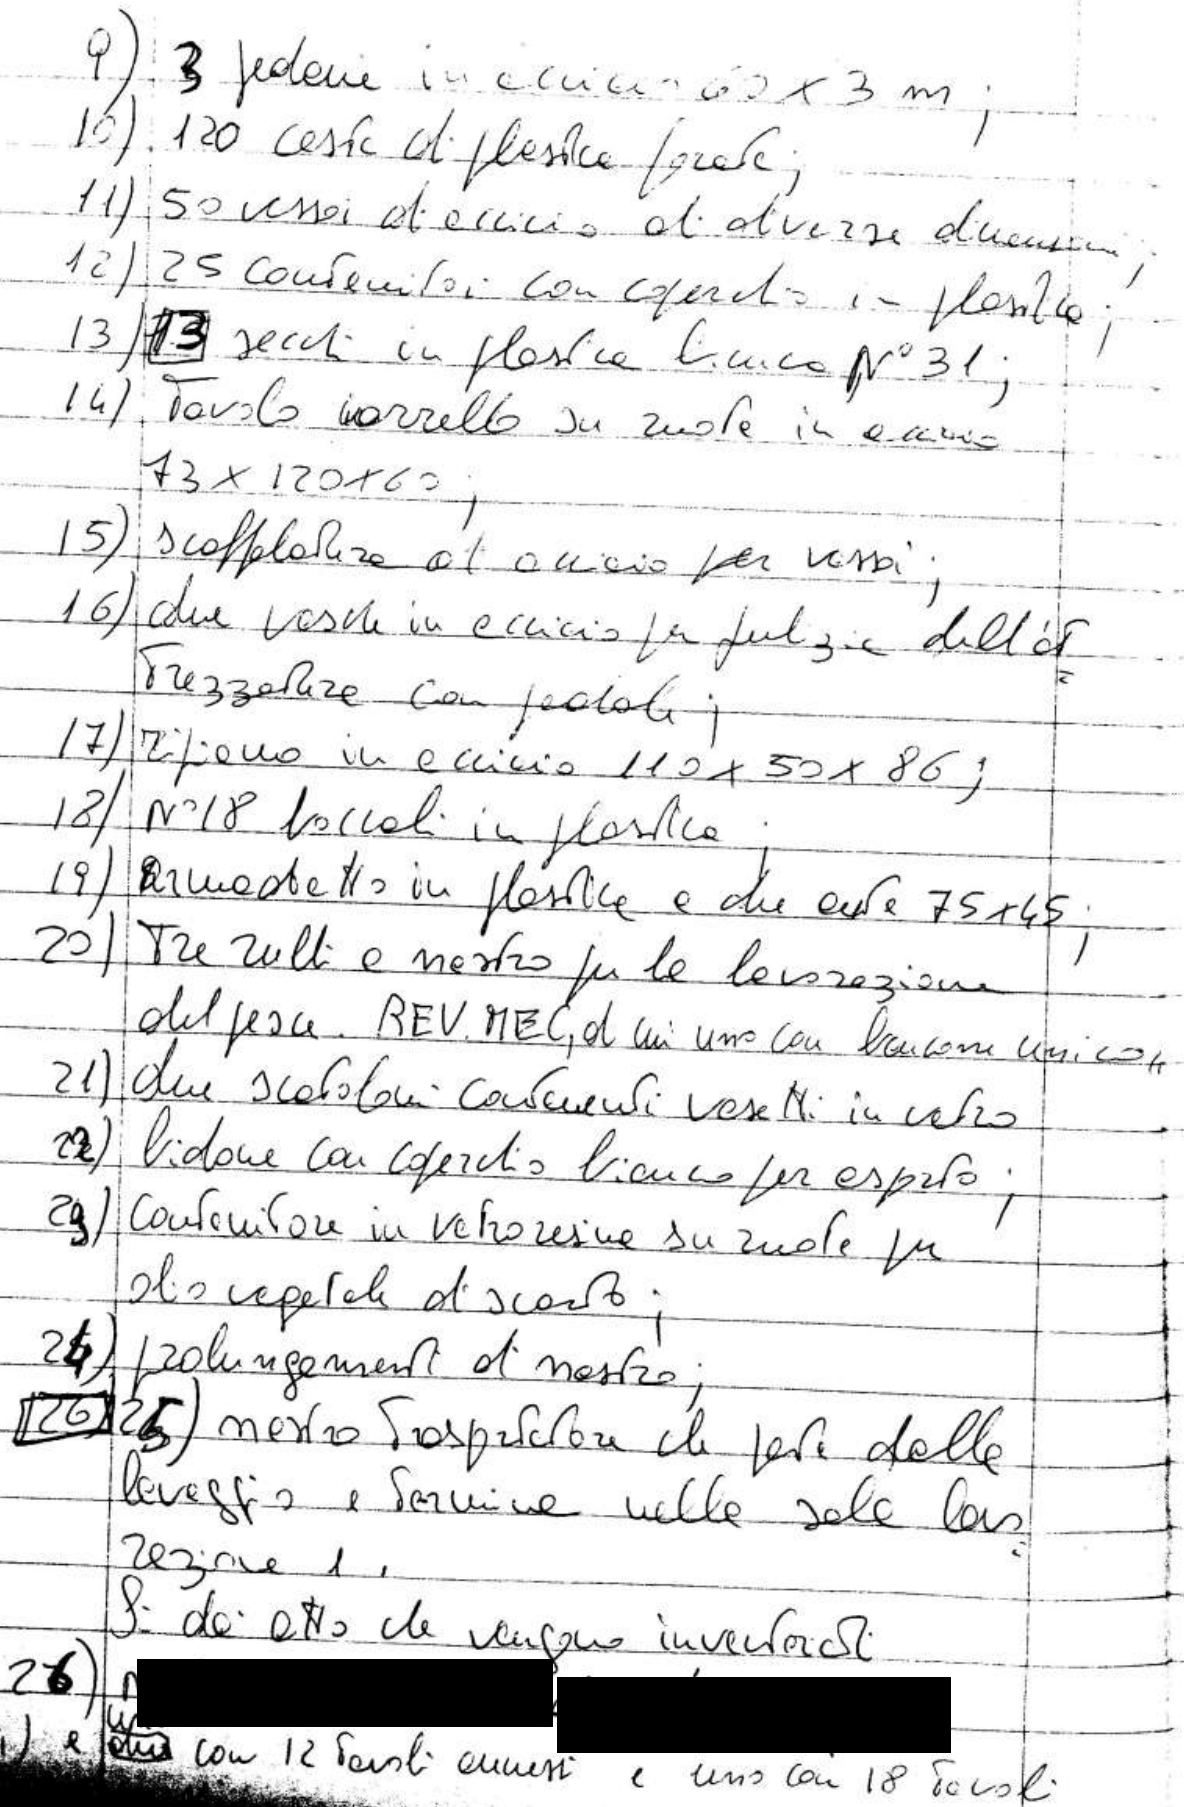 9) 3 pedane in acciaio 60 x 3 m;
10) 120 ceste di plastica forate;
11) 50 vassoi di acciaio di diverse dimensioni;
12) 25 contenitori con coperchio in plastica;
13) 13 secchi in plastica bianca N° 31;
14) Tavolo carrello su ruote in acciaio
73 x 120 x 60;
15) scaffalatura di acciaio per vassoi;
16) due vasche in acciaio per pulizia dell'at=
trezzatura con pedali;
17) ripiano in acciaio 110 x 50 x 86;
18) N° 18 boccali in plastica;
19) armadietto in plastica a due ante 75x45;
20) Tre rulli a nastro per la lavorazione
del pesce. REV. MEC, di cui uno con bancone unico
21) due scatoloni contenenti vasetti in vetro
22) bidone con coperchio bianco per asporto;
23) Contenitore in vetroresina su ruote per
olio vegetale di scarto;
24) prolungamenti di nastro;
26 25) nastro trasportatore che parte dalla
lavaggio e termina nella sala lavo=
razione 1.
Si dà atto che vengono inventariati
26)
e con 12 tavoli annessi e uno con 18 tavoli